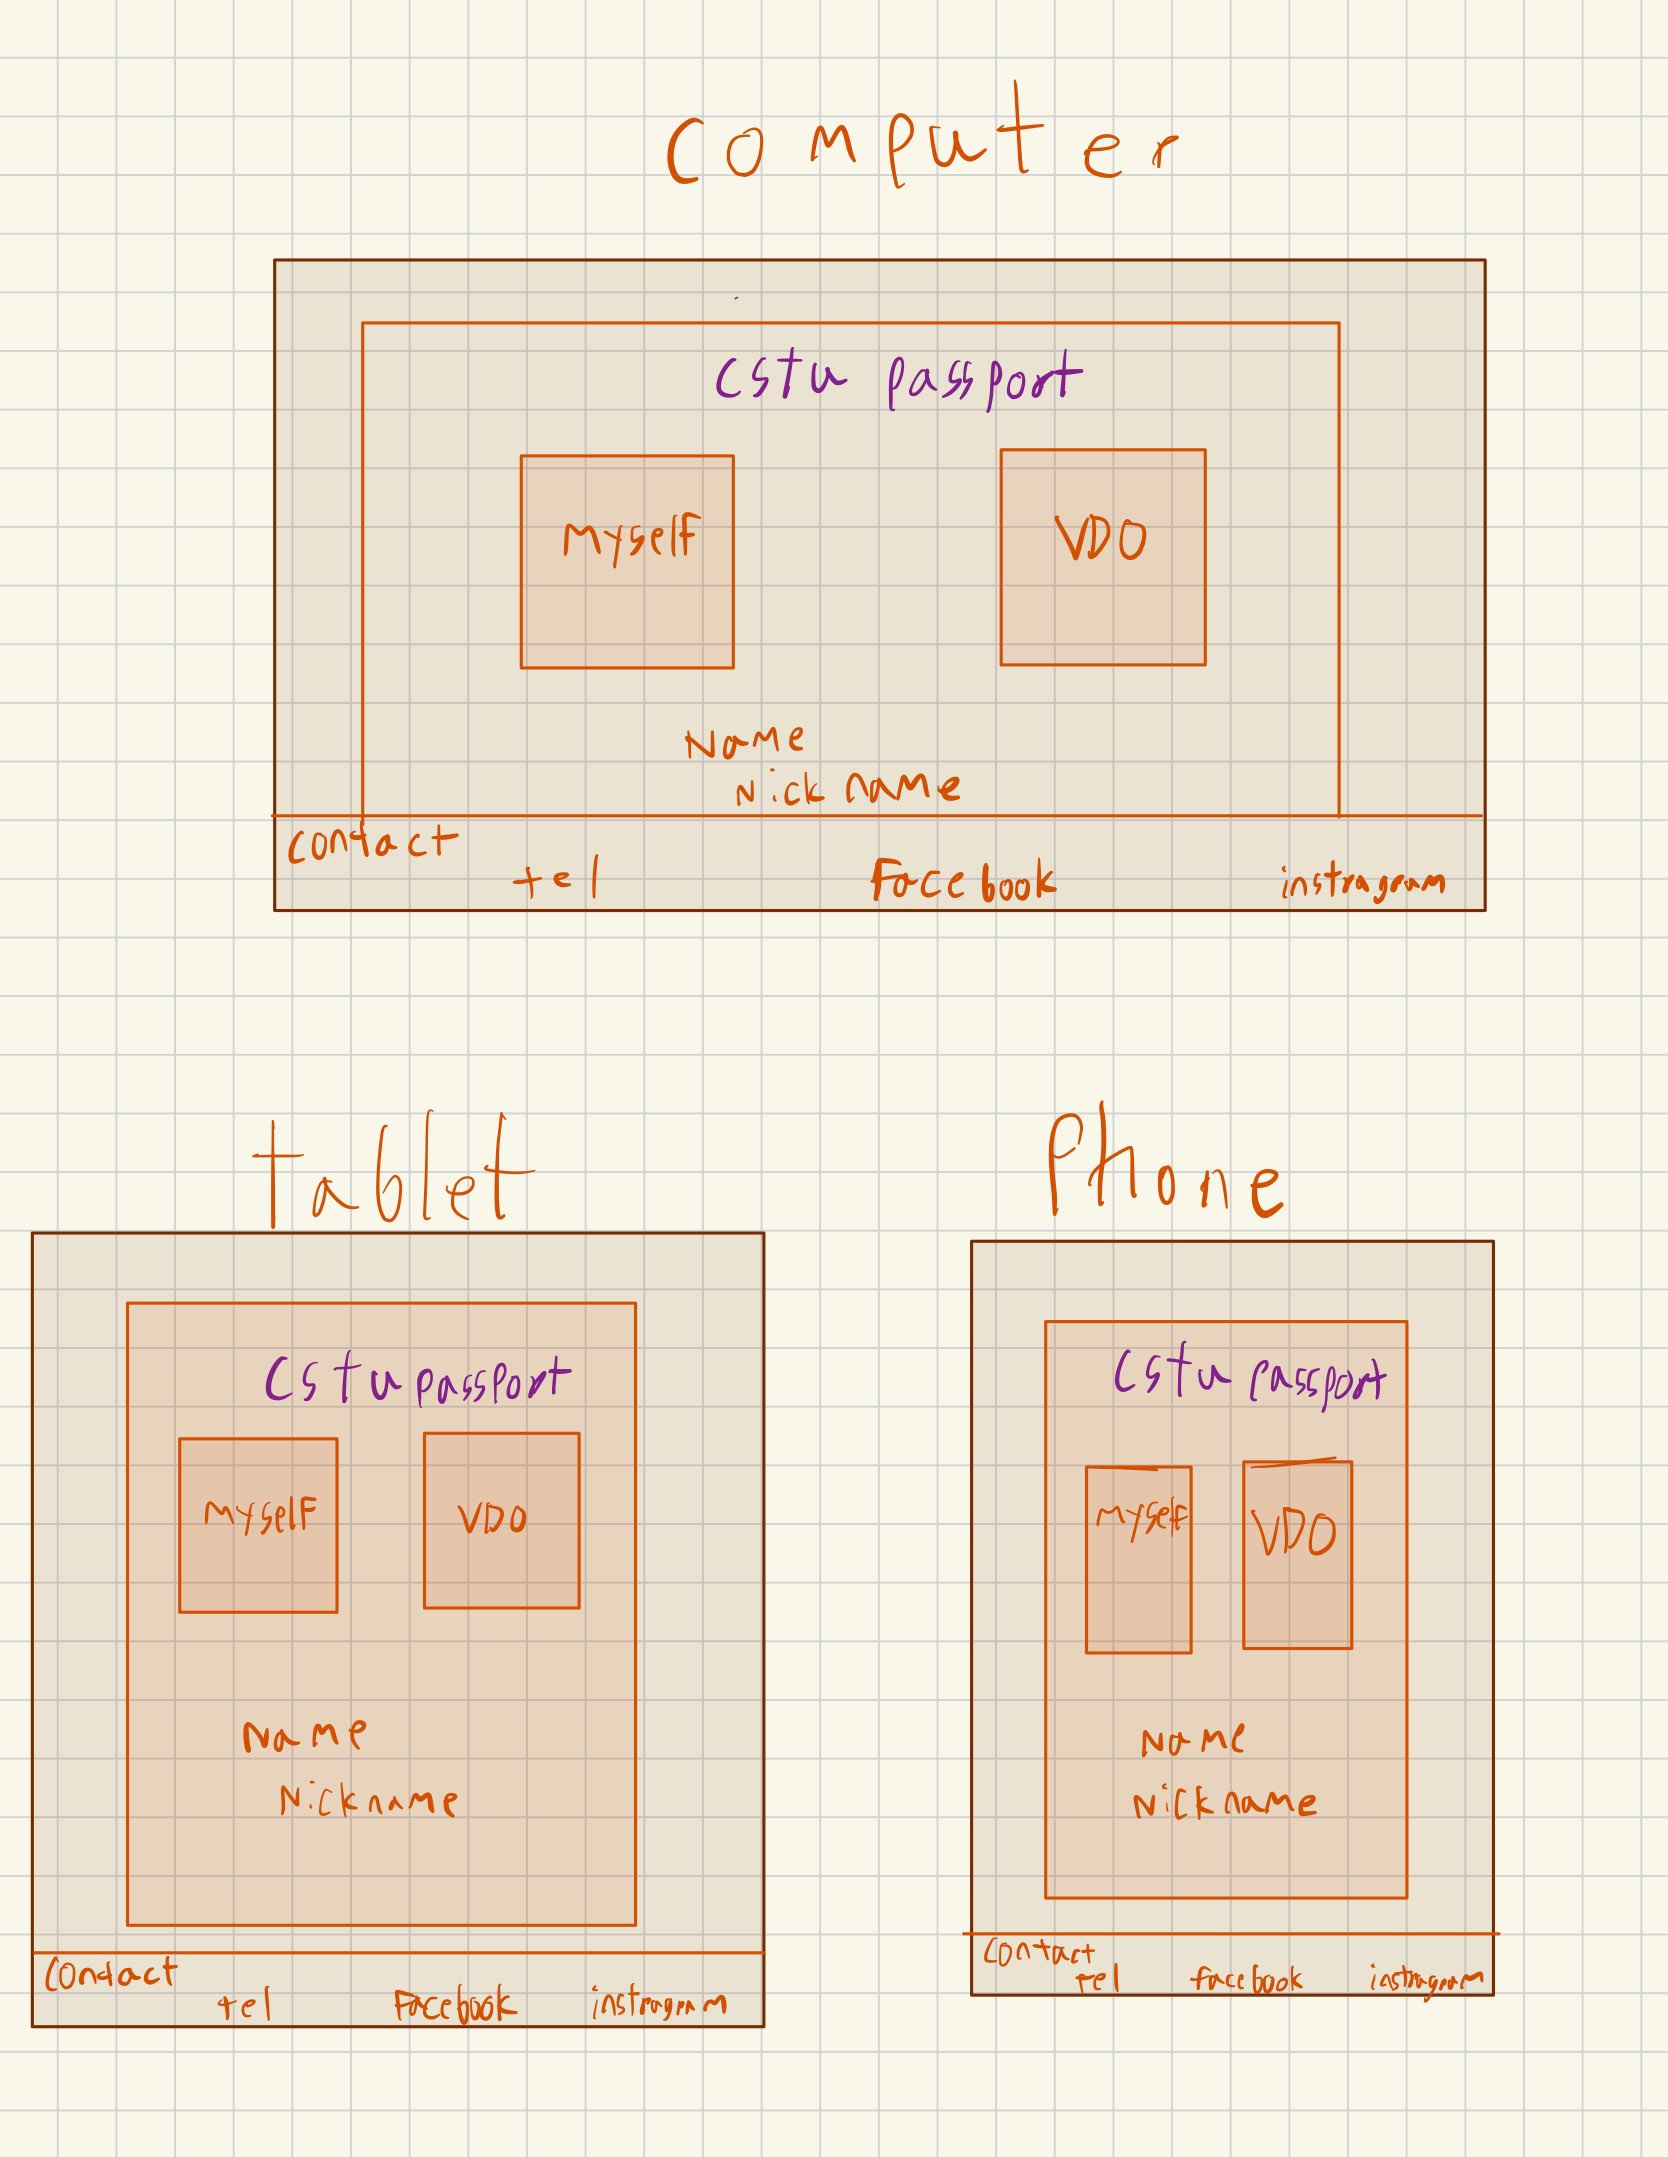 computer
Cstu passport
Myself
VDO
Name
Nick name
contact
tel
Facebook
instragram
tablet
Cstu passport
Myself
VDO
Name
Nickname
Contact
tel
Facebook
instragram
Phone
Cstu passport
Myself
VDO
Name
Nickname
contact
tel
facebook
instragram